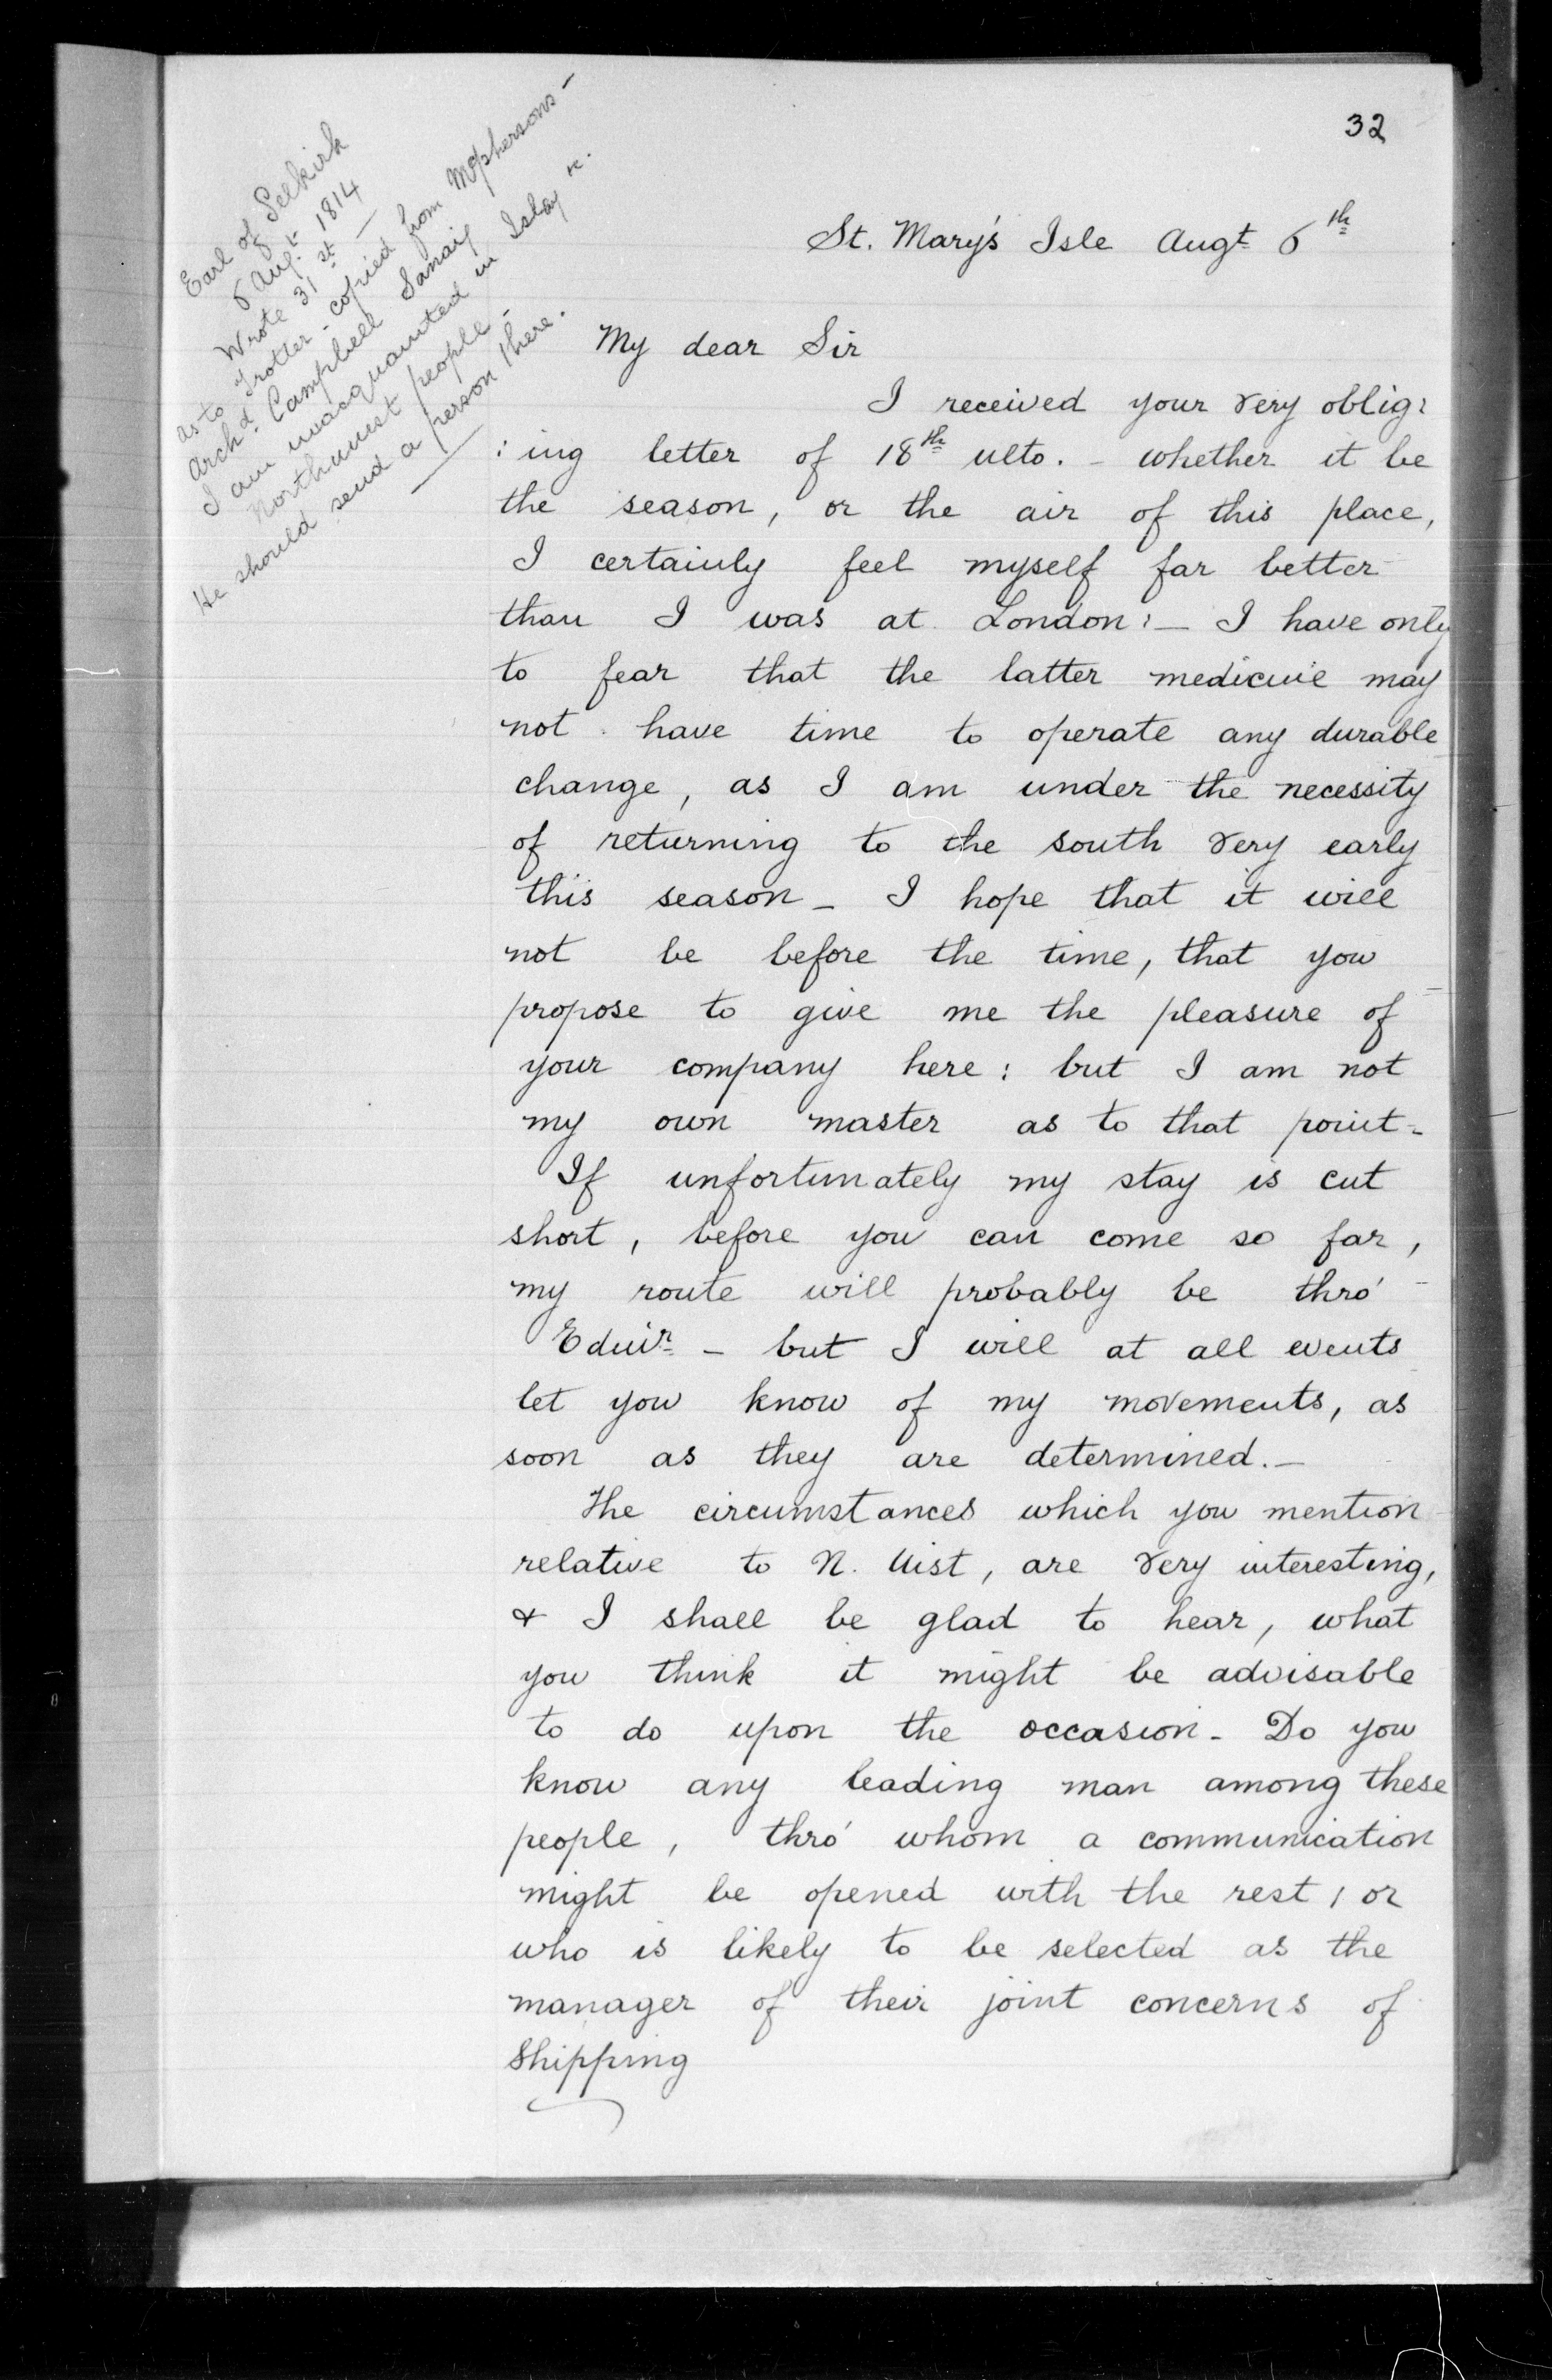 32
Earl of Selkirk
6 Augt. 1814
Wrote 31st —
as to Trotter - copied from McPhersons —
Archd. Campbell Sanaig
I am unacquainted in Islay &c.
Northuist people -
He should send a person there.
St. Mary's Isle Augt 6th
My dear Sir
I received your very oblig:
:ing letter of 18th ulto. - whether it be
the season, or the air of this place,
I certainly feel myself far better
than I was at London: — I have only
to fear that the latter medicine may
not have time to operate any durable
change, as I am under the necessity
of returning to the south very early
this season - I hope that it will
not be before the time, that you
propose to give me the pleasure of
your company here: but I am not
my own master as to that point -
If unfortunately my stay is cut
short, before you can come so far,
my route will probably be thro'
Edinr. - but I will at all events
let you know of my movements, as
soon as they are determined. —
The circumstances which you mention
relative to N. Uist, are very interesting,
& I shall be glad to hear, what
you think it might be advisable
to do upon the occasion - Do you
know any leading man among these
people, thro' whom a communication
might be opened with the rest, or
who is likely to be selected as the
manager of their joint concerns of
shipping